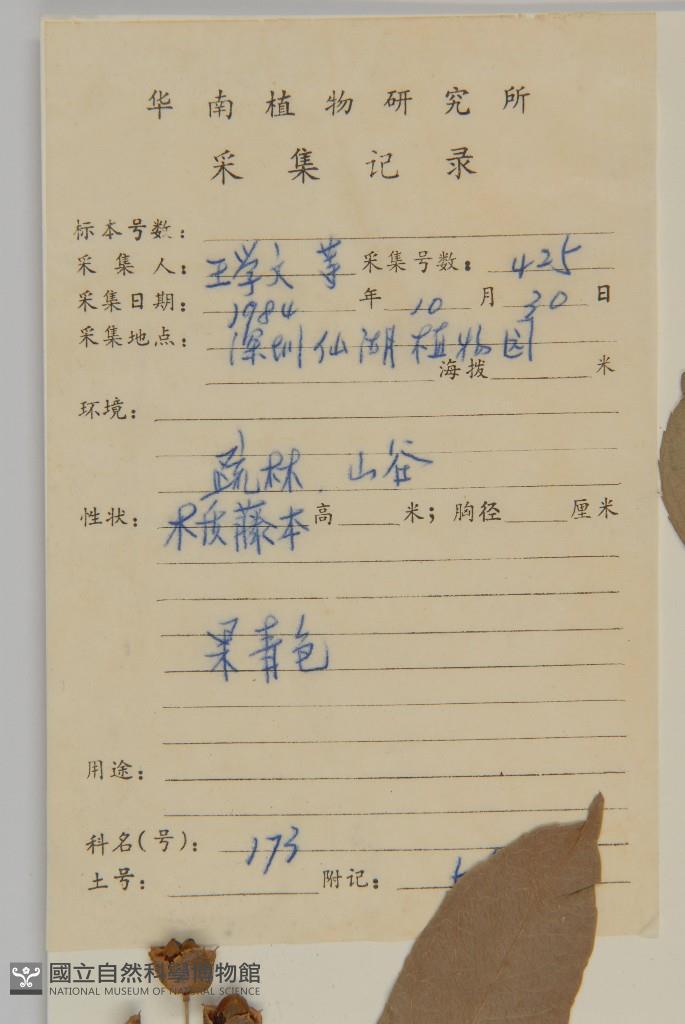 华南植物研究所
采集记录
标本号数：
采集人：王学文 等 采集号数：425
采集日期：1984 年 10 月 30 日
采集地点：深圳仙湖植物园
海拨 米
环境：
疏林．山谷
性状：木质藤本 高 米；胸径 厘米
果青色
用途：
科名(号)：173
土号： 附记：
國立自然科學博物館
NATIONAL MUSEUM OF NATURAL SCIENCE